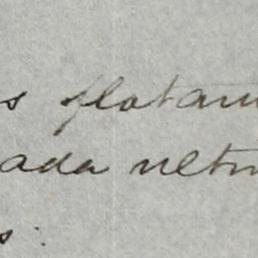 s flotam
ada netm
s: